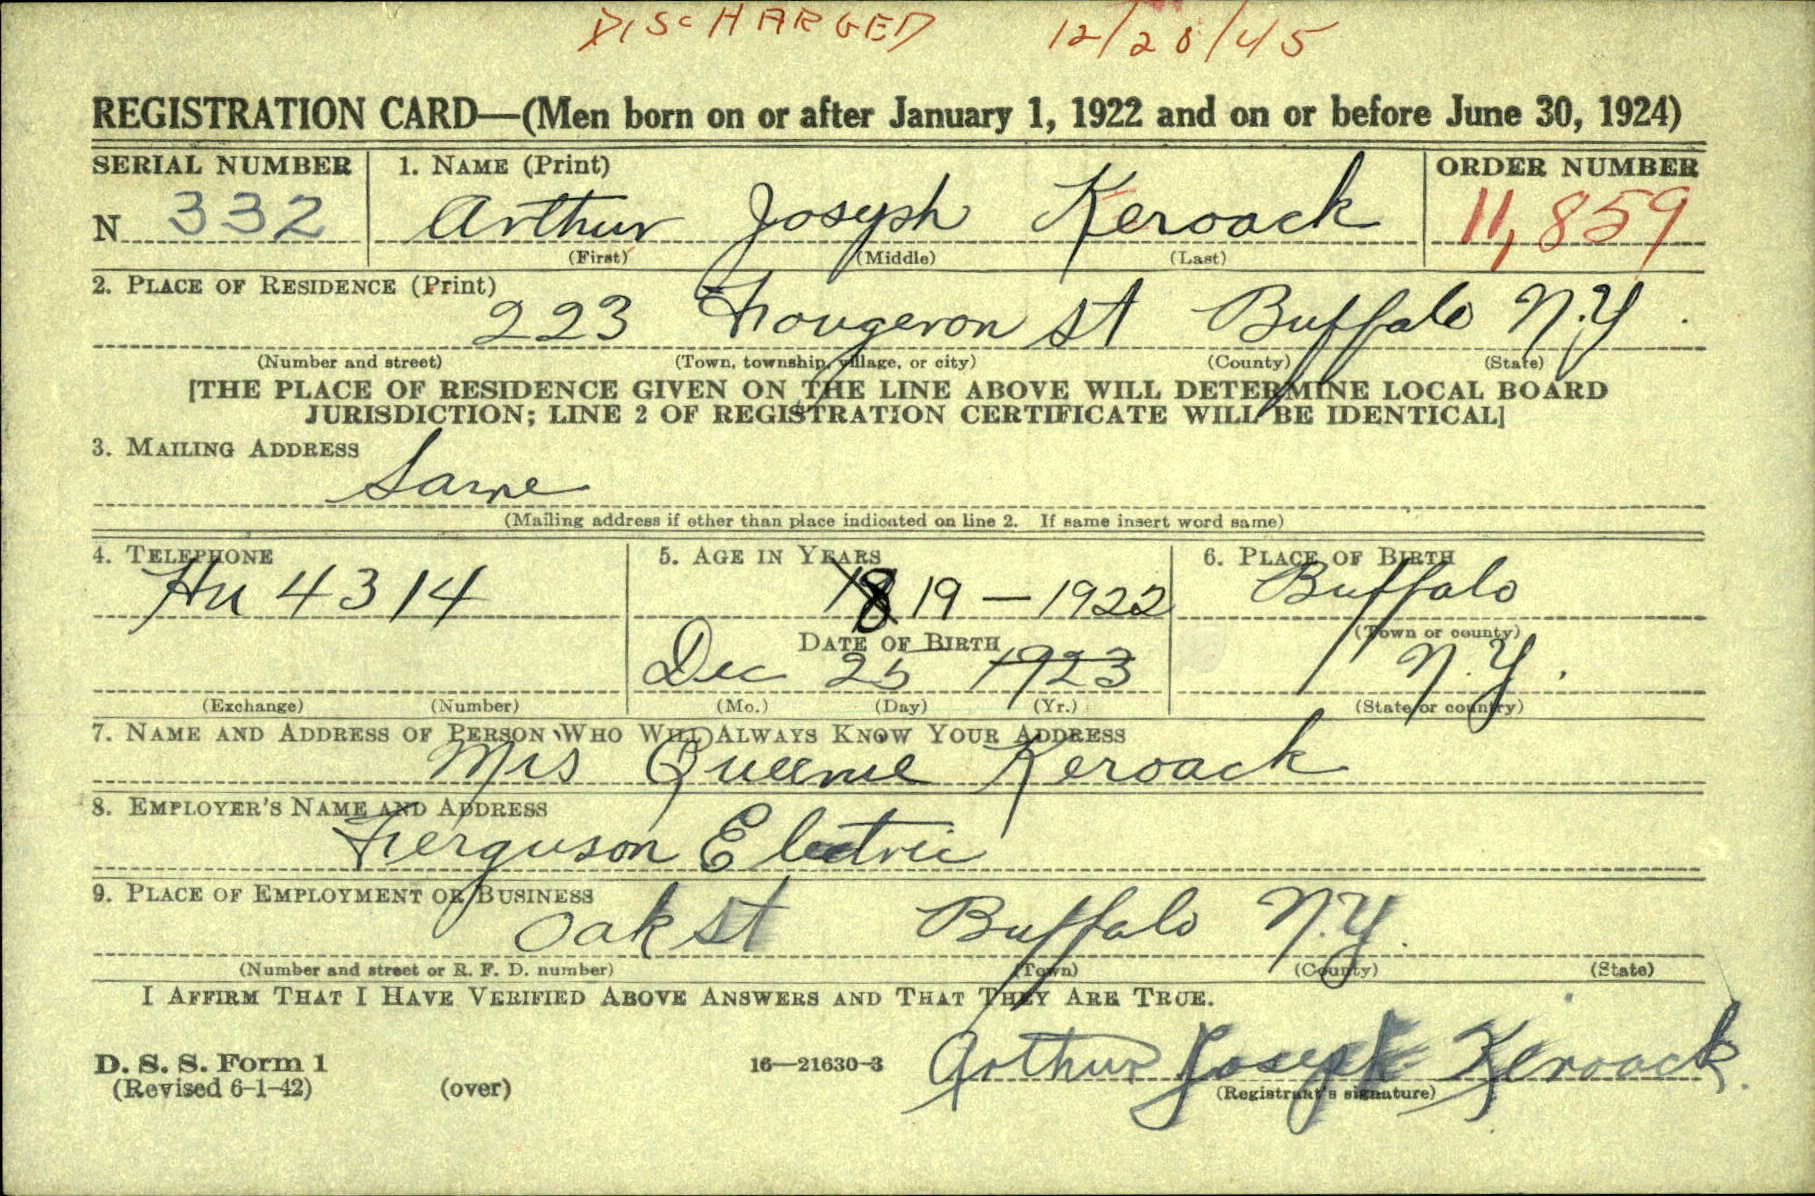 DISCHARGED 12/28/45
REGISTRATION CARD—(Men born on or after January 1, 1922 and on or before June 30, 1924)
SERIAL NUMBER 1. NAME (Print) ORDER NUMBER
N 332 Arthur Joseph Keroack 11,859
(First) (Middle) (Last)
2. PLACE OF RESIDENCE (Print)
223 Fougeron St Buffalo N.Y.
(Number and street) (Town, township, village, or city) (County) (State)
[THE PLACE OF RESIDENCE GIVEN ON THE LINE ABOVE WILL DETERMINE LOCAL BOARD
JURISDICTION; LINE 2 OF REGISTRATION CERTIFICATE WILL BE IDENTICAL]
3. MAILING ADDRESS
Same
(Mailing address if other than place indicated on line 2. If same insert word same)
4. TELEPHONE 5. AGE IN YEARS 6. PLACE OF BIRTH
Hu 4314 18 19 — 1922 Buffalo
DATE OF BIRTH (Town or county)
Dec 25 1923 N.Y.
(Exchange) (Number) (Mo.) (Day) (Yr.) (State or country)
7. NAME AND ADDRESS OF PERSON WHO WILL ALWAYS KNOW YOUR ADDRESS
Mrs Queenie Keroack
8. EMPLOYER'S NAME AND ADDRESS
Ferguson Electric
9. PLACE OF EMPLOYMENT OR BUSINESS
Oak St Buffalo N.Y.
(Number and street or R. F. D. number) (Town) (County) (State)
I AFFIRM THAT I HAVE VERIFIED ABOVE ANSWERS AND THAT THEY ARE TRUE.
D. S. S. Form 1 16—21630-3 Arthur Joseph Keroack.
(Revised 6-1-42) (over) (Registrant's signature)